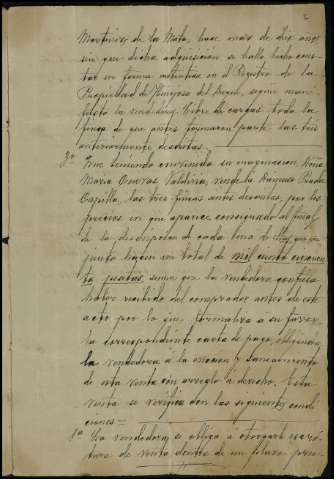 2
Martinez de la Mata, hace mas de diez años
sin que dicha adquisicion se halle hecho cons-
tar en forma autentica en el Registro de la
Propiedad de Hinojosa del Duque, segun mani-
fiesta la vendedora, libre de cargas toda la
finca de que antes formaron parte las tres
anteriormente descritas.
3º Que teniendo convenido su enagenacion, Doña
Maria Cuevas Valdivia, vende a Damaso Rueda
Capilla, las tres fincas antes descritas, por los
precios en que aparece consignado al final
de la descripcion de cada una de ellas, que en
junto hacen un total de mil ciento cincuen-
ta pesetas, suma que la vendedora confiesa
haber recibido del comprador antes de este
acto por lo que formaliza a su favor
la correspondiente carta de pago, obligandose
la vendedora á la eviccion y saneamiento
de esta venta con arreglo á derecho. Esta
venta se verifica con las siguientes condi-
ciones=
1ª La vendedora se obliga a otorgar escri-
tura de venta dentro de un plazo pru-